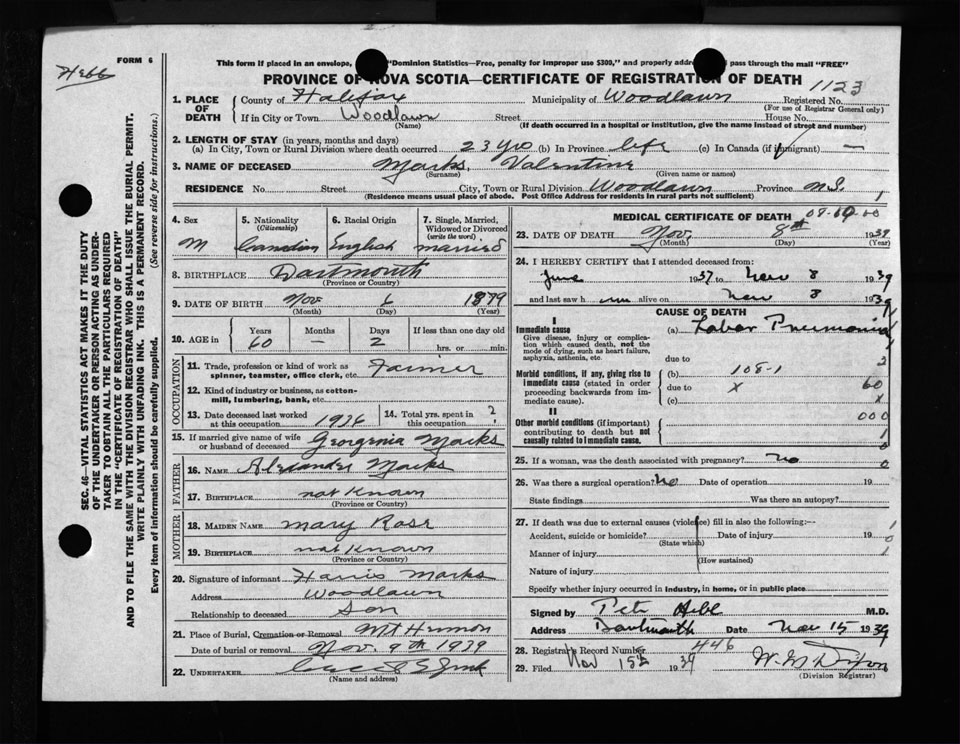 FORM 6
Hebb
This form if placed in an envelope, "Dominion Statistics—Free, penalty for improper use $300," and properly addre pass through the mail "FREE"
PROVINCE OF NOVA SCOTIA—CERTIFICATE OF REGISTRATION OF DEATH
1123
1. PLACE OF DEATH County of Halifax Municipality of Woodlawn Registered No.
(For use of Registrar General only)
If in City or Town Woodlawn Street House No.
(Name) (If death occurred in a hospital or institution, give the name instead of street and number)
2. LENGTH OF STAY (in years, months and days)
(a) In City, Town or Rural Division where death occurred 23 yrs (b) In Province life (c) In Canada (if immigrant) —
3. NAME OF DECEASED Marks Valentine
(Surname) (Given name or names)
RESIDENCE No. Street City, Town or Rural Division Woodlawn Province N.S. 1
(Residence means usual place of abode. Post Office Address for residents in rural parts not sufficient)
4. Sex M
5. Nationality (Citizenship) Canadian
6. Racial Origin English
7. Single, Married, Widowed or Divorced (write the word) married
8. BIRTHPLACE Dartmouth
(Province or Country)
9. DATE OF BIRTH Nov 6 1879
(Month) (Day) (Year)
10. AGE in Years Months Days If less than one day old
60 — 2 hrs. or min.
OCCUPATION
11. Trade, profession or kind of work as spinner, teamster, office clerk, etc. Farmer
12. Kind of industry or business, as cotton-mill, lumbering, bank, etc.
13. Date deceased last worked at this occupation 1936
14. Total yrs. spent in this occupation ?
15. If married give name of wife or husband of deceased Georgenia Marks
FATHER
16. NAME Alexander Marks
17. BIRTHPLACE not known
(Province or Country)
MOTHER
18. MAIDEN NAME Mary Rose
19. BIRTHPLACE not known
(Province or Country)
20. Signature of informant Harris Marks
Address Woodlawn
Relationship to deceased Son
21. Place of Burial, Cremation or Removal Mt Hermon
Date of burial or removal Nov. 9th 1939
22. UNDERTAKER
(Name and address)
MEDICAL CERTIFICATE OF DEATH
23. DATE OF DEATH Nov. 8th 1939
(Month) (Day) (Year)
24. I HEREBY CERTIFY that I attended deceased from:
June 1937 to Nov 8 1939
and last saw him alive on Nov 8 1939
CAUSE OF DEATH
I
Immediate cause (a) Lobar Pneumonia
Give disease, injury or complication which caused death, not the mode of dying, such as heart failure, asphyxia, asthenia, etc.
due to
Morbid conditions, if any, giving rise to immediate cause (stated in order proceeding backwards from immediate cause). (b) 108-1
due to X 60
(c) X
II
000
Other morbid conditions (if important) contributing to death but not causally related to immediate cause. 1
25. If a woman, was the death associated with pregnancy? no 0
26. Was there a surgical operation? No Date of operation 19
State findings Was there an autopsy?
27. If death was due to external causes (violence) fill in also the following:—
Accident, suicide or homicide? Date of injury 19
(State which)
Manner of injury
(How sustained)
Nature of injury
Specify whether injury occurred in industry, in home, or in public place
Signed by Hebb M.D.
Address Dartmouth Date Nov 15 1939
28. Registrar's Record Number 446
29. Filed Nov 15th 1939 W. G. Dixon
(Division Registrar)
SEC. 46—VITAL STATISTICS ACT MAKES IT THE DUTY
OF THE UNDERTAKER OR PERSON ACTING AS UNDER-
TAKER TO OBTAIN ALL THE PARTICULARS REQUIRED
IN THE "CERTIFICATE OF REGISTRATION OF DEATH"
AND TO FILE THE SAME WITH THE DIVISION REGISTRAR WHO SHALL ISSUE THE BURIAL PERMIT.
WRITE PLAINLY WITH UNFADING INK. THIS IS A PERMANENT RECORD.
Every item of information should be carefully supplied. (See reverse side for instructions.)